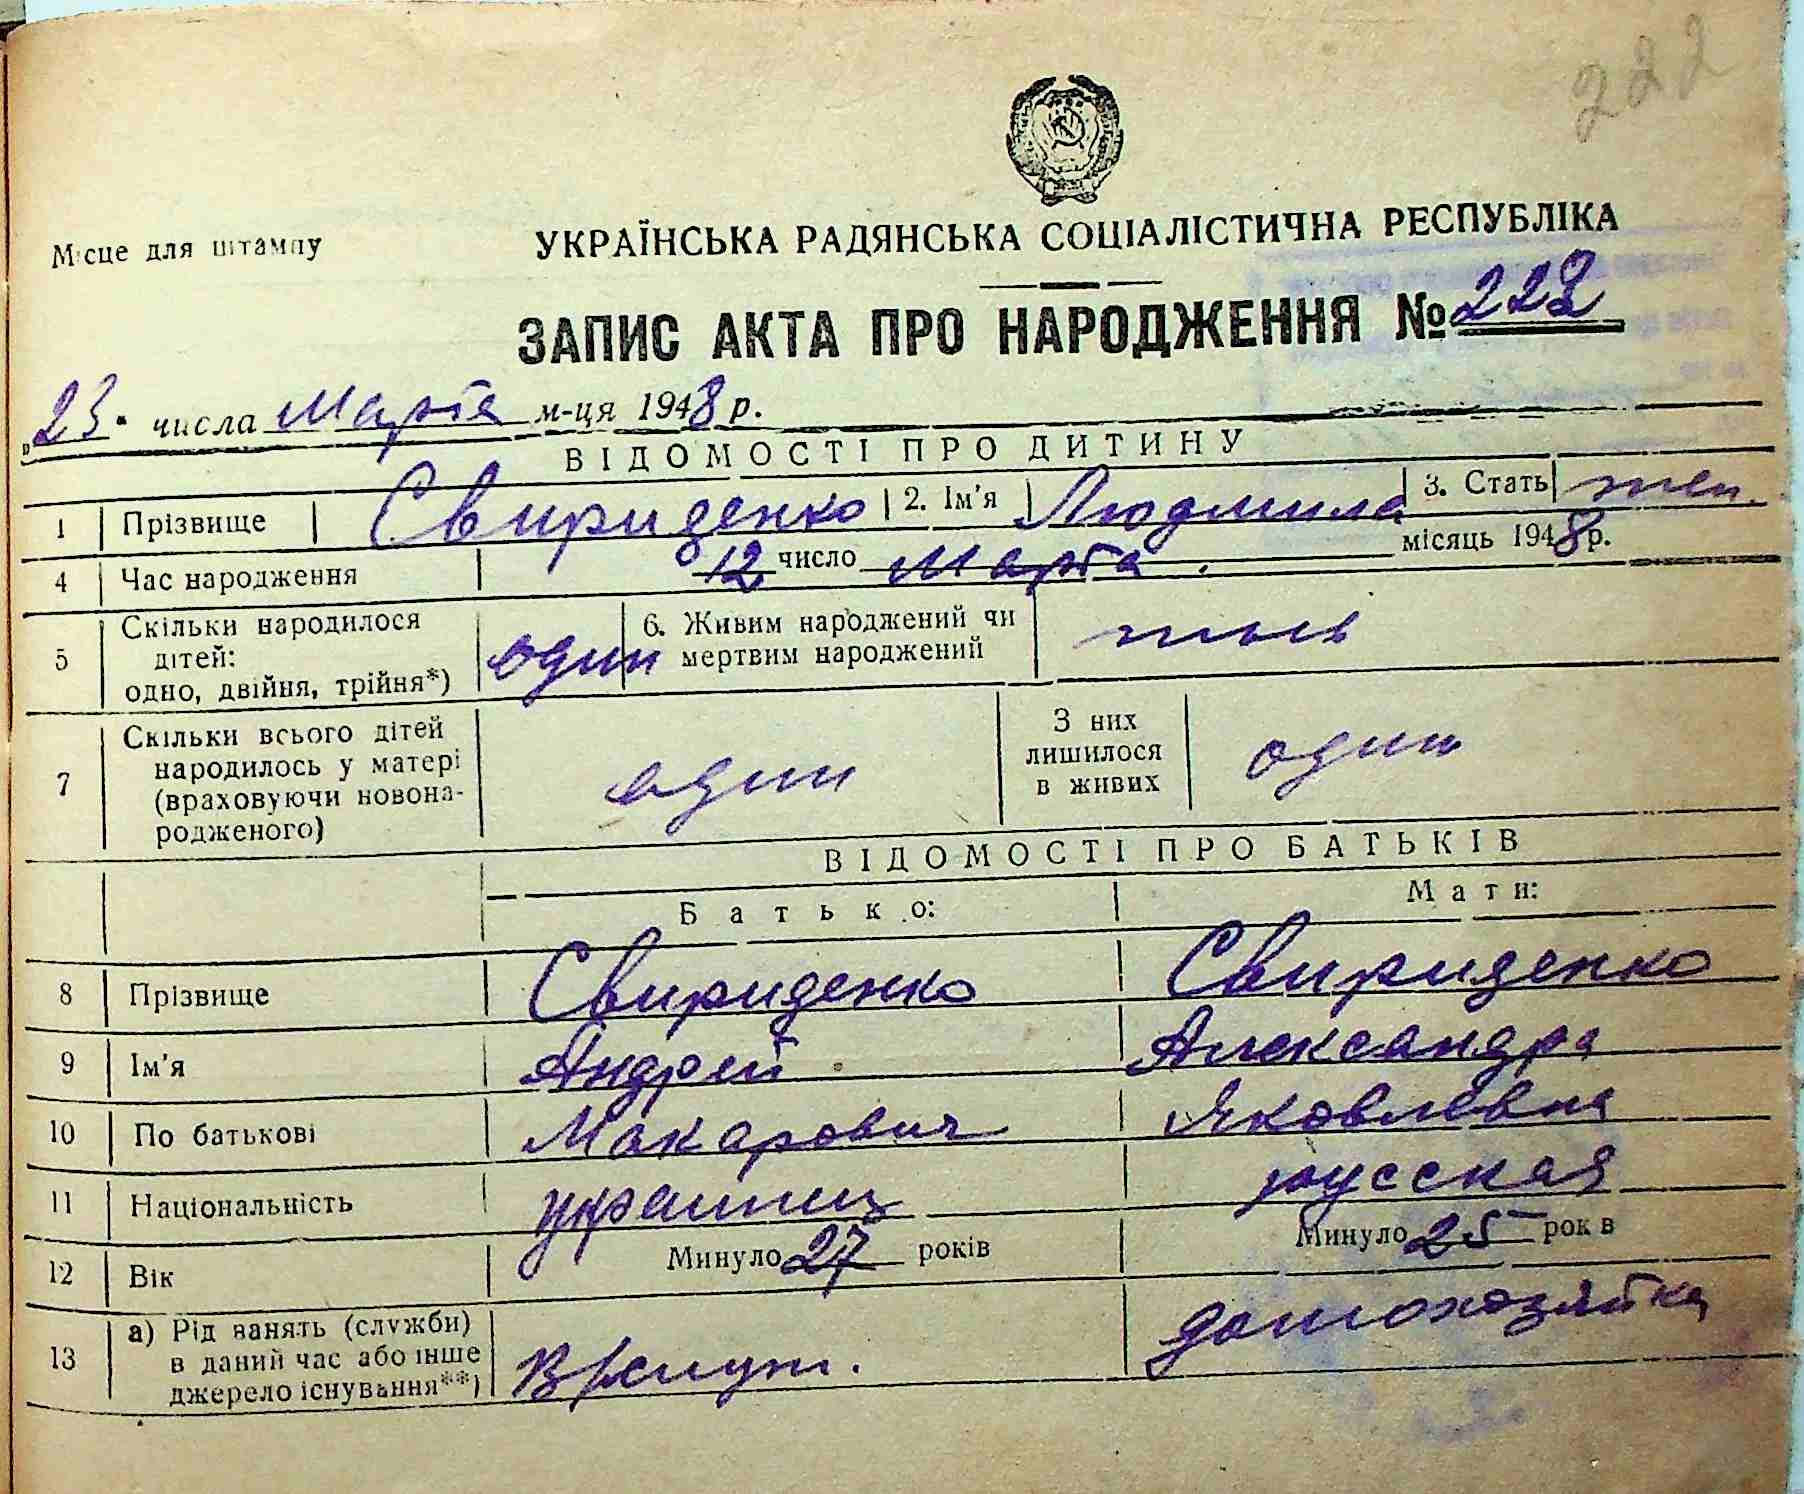 222
Місце для штампу
УКРАЇНСЬКА РАДЯНСЬКА СОЦІАЛІСТИЧНА РЕСПУБЛІКА
ЗАПИС АКТА ПРО НАРОДЖЕННЯ № 222
„23" числа Марта м-ця 1948 р.
ВІДОМОСТІ ПРО ДИТИНУ
1 Прізвище Свириденко 2. Ім'я Людмила 3. Стать жен.
4 Час народження 12 число Марта місяць 1948 р.
5 Скільки народилося дітей: одно, двійня, трійня*) один 6. Живим народжений чи мертвим народжений
7 Скільки всього дітей народилось у матері (враховуючи новона-родженого) один З них лишилося в живих один
ВІДОМОСТІ ПРО БАТЬКІВ
Батько: Мати:
8 Прізвище Свириденко Свириденко
9 Ім'я Андрей Александра
10 По батькові Макарович Яковлевна
11 Національність украинец русская
12 Вік Минуло 27 років Минуло 25 рок в
13 а) Рід занять (служби) в даний час або інше джерело існування**) В/служ. домохозяйка